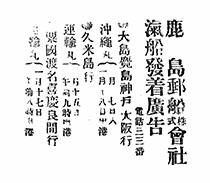 鹿島郵船株式會社
滊船發着廣告
電話三三番
大島 島神戸大阪行
沖繩丸 月十七日入 月十八日 港
久米島行
運輸丸 十五日 九時 港
粟國渡名喜慶良間行
輸丸 十七日 八時 港